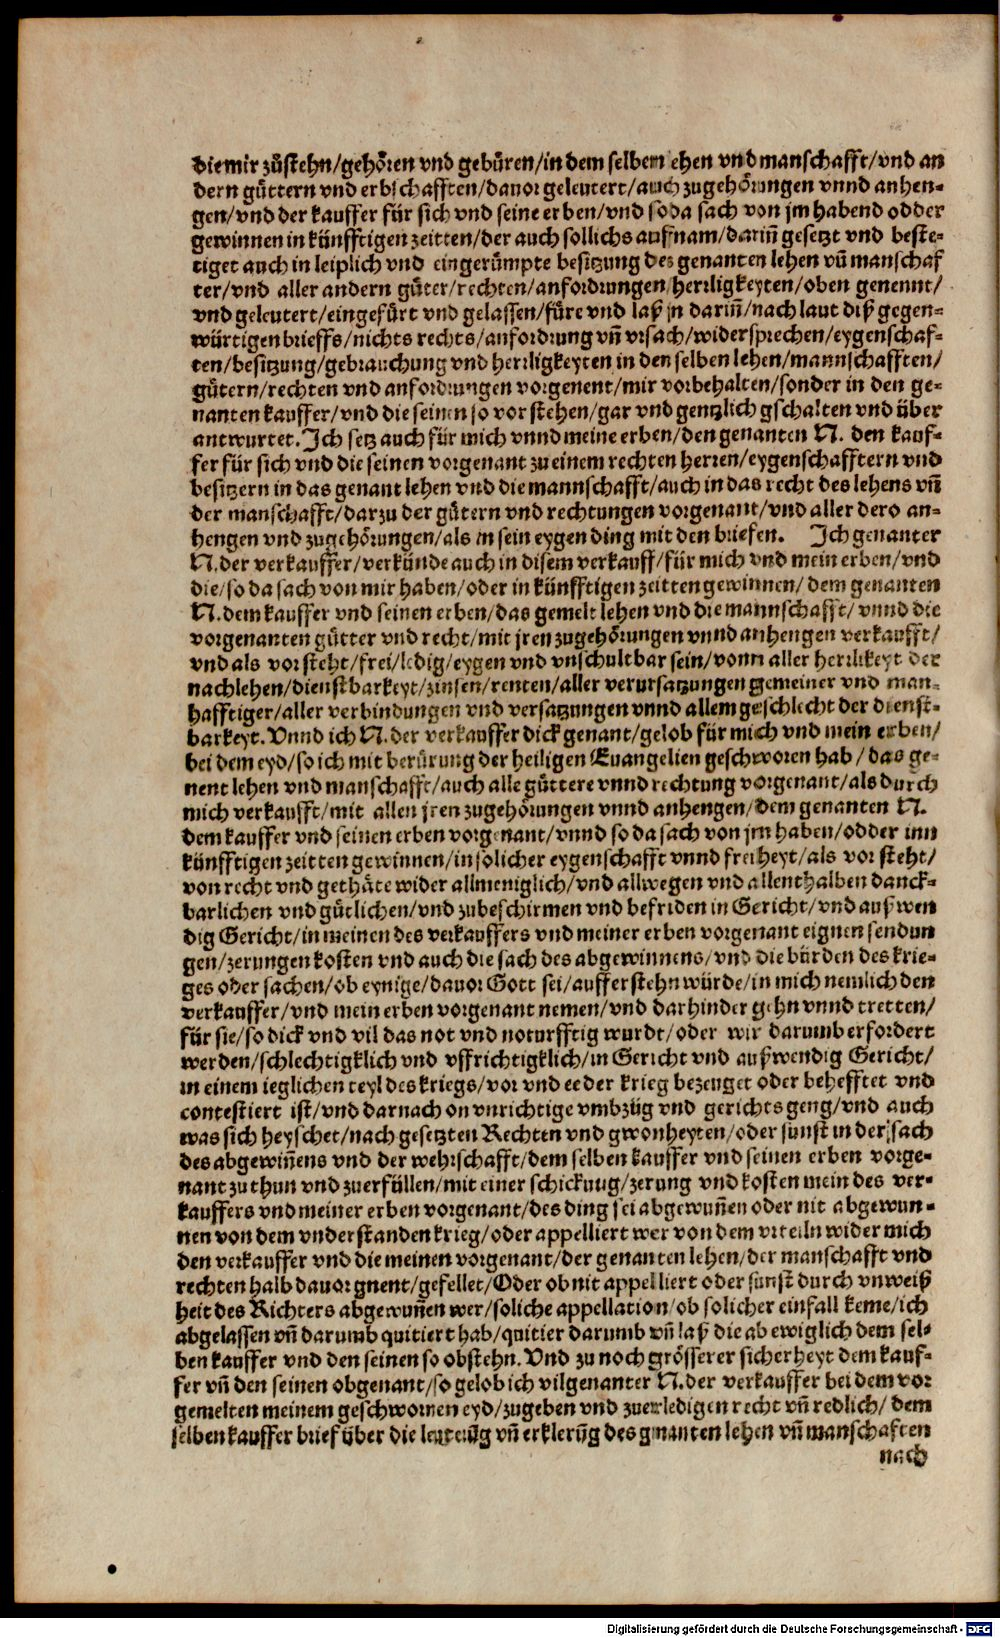 die mir zůstehn/gehören vnd gebüren/in dem selbem lehen vnd manschafft/vnd an
dern güttern vnd erbschafften/dauor geleutert/auch zugehörungen vnnd anhen-
gen/vnd der kauffer für sich vnd seine erben/vnd so da sach von jm habend odder
gewinnen in künfftigen zeitten/der auch sollichs auffnam/dariñ gesetzt vnd beste-
tiget auch in leiplich vnd eingerümpte besitzung des genanten lehen vñ manschaf
ter/vnd aller andern güter/rechten/anfordrungen/herrligkeyten/oben genennt/
vnd geleutert/eingefürt vnd gelassen/füre vnd laß jn dariñ/nach laut diß gegen-
würtigen brieffs/nichts rechts/anfordrung vñ vrsach/widersprechen/eygenschaf-
ten/besitzung/gebrauchung vnd herrligkeyten in den selben lehen/mannschafften/
gütern/rechten vnd anfordrungen vorgenent/mir vorbehalten/sonder in den ge-
nanten kauffer/vnd die seinen so vor stehen/gar vnd gentzlich gschalten vnd über
antwurtet. Ich setz auch für mich vnnd meine erben/den genanten N. den kauf-
fer für sich vnd die seinen vorgenant zu einem rechten herren/eygenschafftern vnd
besitzern in das genant lehen vnd die mannschafft/auch in das recht des lehens vñ
der manschafft/darzu der gütern vnd rechtungen vorgenant/vnd aller dero an-
hengen vnd zugehörungen/als in sein eygen ding mit den briefen. Ich genanter
N. der verkauffer/verkünde auch in disem verkauff/für mich vnd mein erben/vnd
die/so da sach von mir haben/oder in künfftigen zeitten gewinnen/dem genanten
N. dem kauffer vnd seinen erben/das gemelt lehen vnd die mannschafft/vnnd die
vorgenanten gütter vnd recht/mit jren zugehörungen vnnd anhengen verkaufft/
vnd als vor steht/frei/ledig/eygen vnd vnschultbar sein/vonn aller herrlikeyt der
nachlehen/dienstbarkeyt/zinsen/renten/aller verursatzungen gemeiner vnd man-
hafftiger/aller verbindungen vnd versatzungen vnnd allem geschlecht der dienst-
barkeyt. Vnnd ich N. der verkauffer dick genant/gelob für mich vnd mein erben/
bei dem eyd/so ich mit berürung der heiligen Euangelien geschworen hab/das ge-
nent lehen vnd manschafft/auch alle güttere vnnd rechtung vorgenant/als durch
mich verkaufft/mit allen jren zugehörungen vnnd anhengen/dem genanten N.
dem kauffer vnd seinen erben vorgenant/vnnd so da sach von jm haben/odder inn
künfftigen zeitten gewinnen/in solicher eygenschafft vnnd freiheyt/als vor steht/
von recht vnd gethäte wider allmeniglich/vnd allwegen vnd allenthalben danck-
barlichen vnd gütlichen/vnd zubeschirmen vnd befriden in Gericht/vnd außwen
dig Gericht/in meinen des verkauffers vnd meiner erben vorgenant eignen sendun
gen/zerungen kosten vnd auch die sach des abgewinnens/vnd die bürden des krie-
ges oder sachen/ob eynige/dauor Gott sei/aufferstehn würde/in mich nemlich den
verkauffer/vnd mein erben vorgenant nemen/vnd darhinder gehn vnnd tretten/
für sie/so dick vnd vil das not vnd noturfftig wurdt/oder wir darumb erfordert
werden/schlechtigklich vnd vffrichtigklich/in Gericht vnd außwendig Gericht/
in einem ieglichen teyl des kriegs/vor vnd ee der krieg bezeuget oder behefftet vnd
contestiert ist/vnd darnach on vnrichtige vmbzüg vnd gerichts geng/vnd auch
was sich heyschet/nach gesetzten Rechten vnd gwonheyten/oder sunst in der sach
des abgewiñens vnd der wehrschafft/dem selben kauffer vnd seinen erben vorge-
nant zu thun vnd zuerfüllen/mit einer schickung/zerung vnd kosten mein des ver-
kauffers vnd meiner erben vorgenant/des ding sei abgewuñen oder nit abgewun-
nen von dem vnderstanden krieg/oder appelliert wer von dem vrteiln wider mich
den verkauffer vnd die meinen vorgenant/der genanten lehen/der manschafft vnd
rechten halb dauor gnent/gefellet/Oder ob nit appelliert oder sunst durch vnweiß
heit des Richters abgewuñen wer/soliche appellation/ob solicher einfall keme/ich
abgelassen vñ darumb quitiert hab/quitier darumb vñ laß die ab ewiglich dem sel-
ben kauffer vnd den seinen so obstehn. Vnd zu noch grösserer sicherheyt dem kauf-
fer vñ den seinen obgenant/so gelob ich vilgenanter N. der verkauffer bei dem vor
gemelten meinem geschwornen eyd/zugeben vnd zuerledigen recht vñ redlich/dem
selben kauffer brief über die leuterũg vñ erklerũg des gnanten lehen vñ manschaften
nach
Digitalisierung gefördert durch die Deutsche Forschungsgemeinschaft - DFG